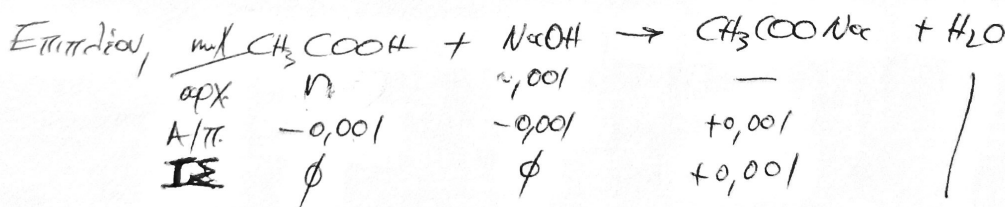 Επιπλέον, mol CH3COOH + NaOH → CH3COONa + H2O
αρχ. n 0,001 —
Α/Π. -0,001 -0,001 +0,001
ΙΣ ϕ ϕ +0,001